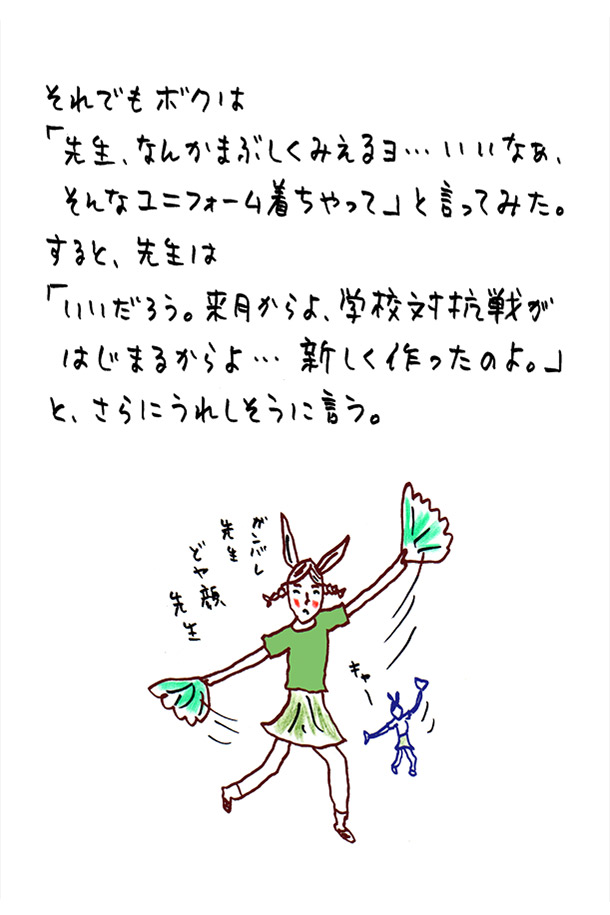 それでもボクは
「先生、なんかまぶしくみえるヨ…いいなぁ、
そんなユニフォーム着ちゃって」と言ってみた。
すると、先生は
「いいだろう。来月からよ、学校対抗戦が
はじまるからよ… 新しく作ったのよ。」
と、さらにうれしそうに言う。
ガンバレ
先生
どヤ顔
先生
キャー